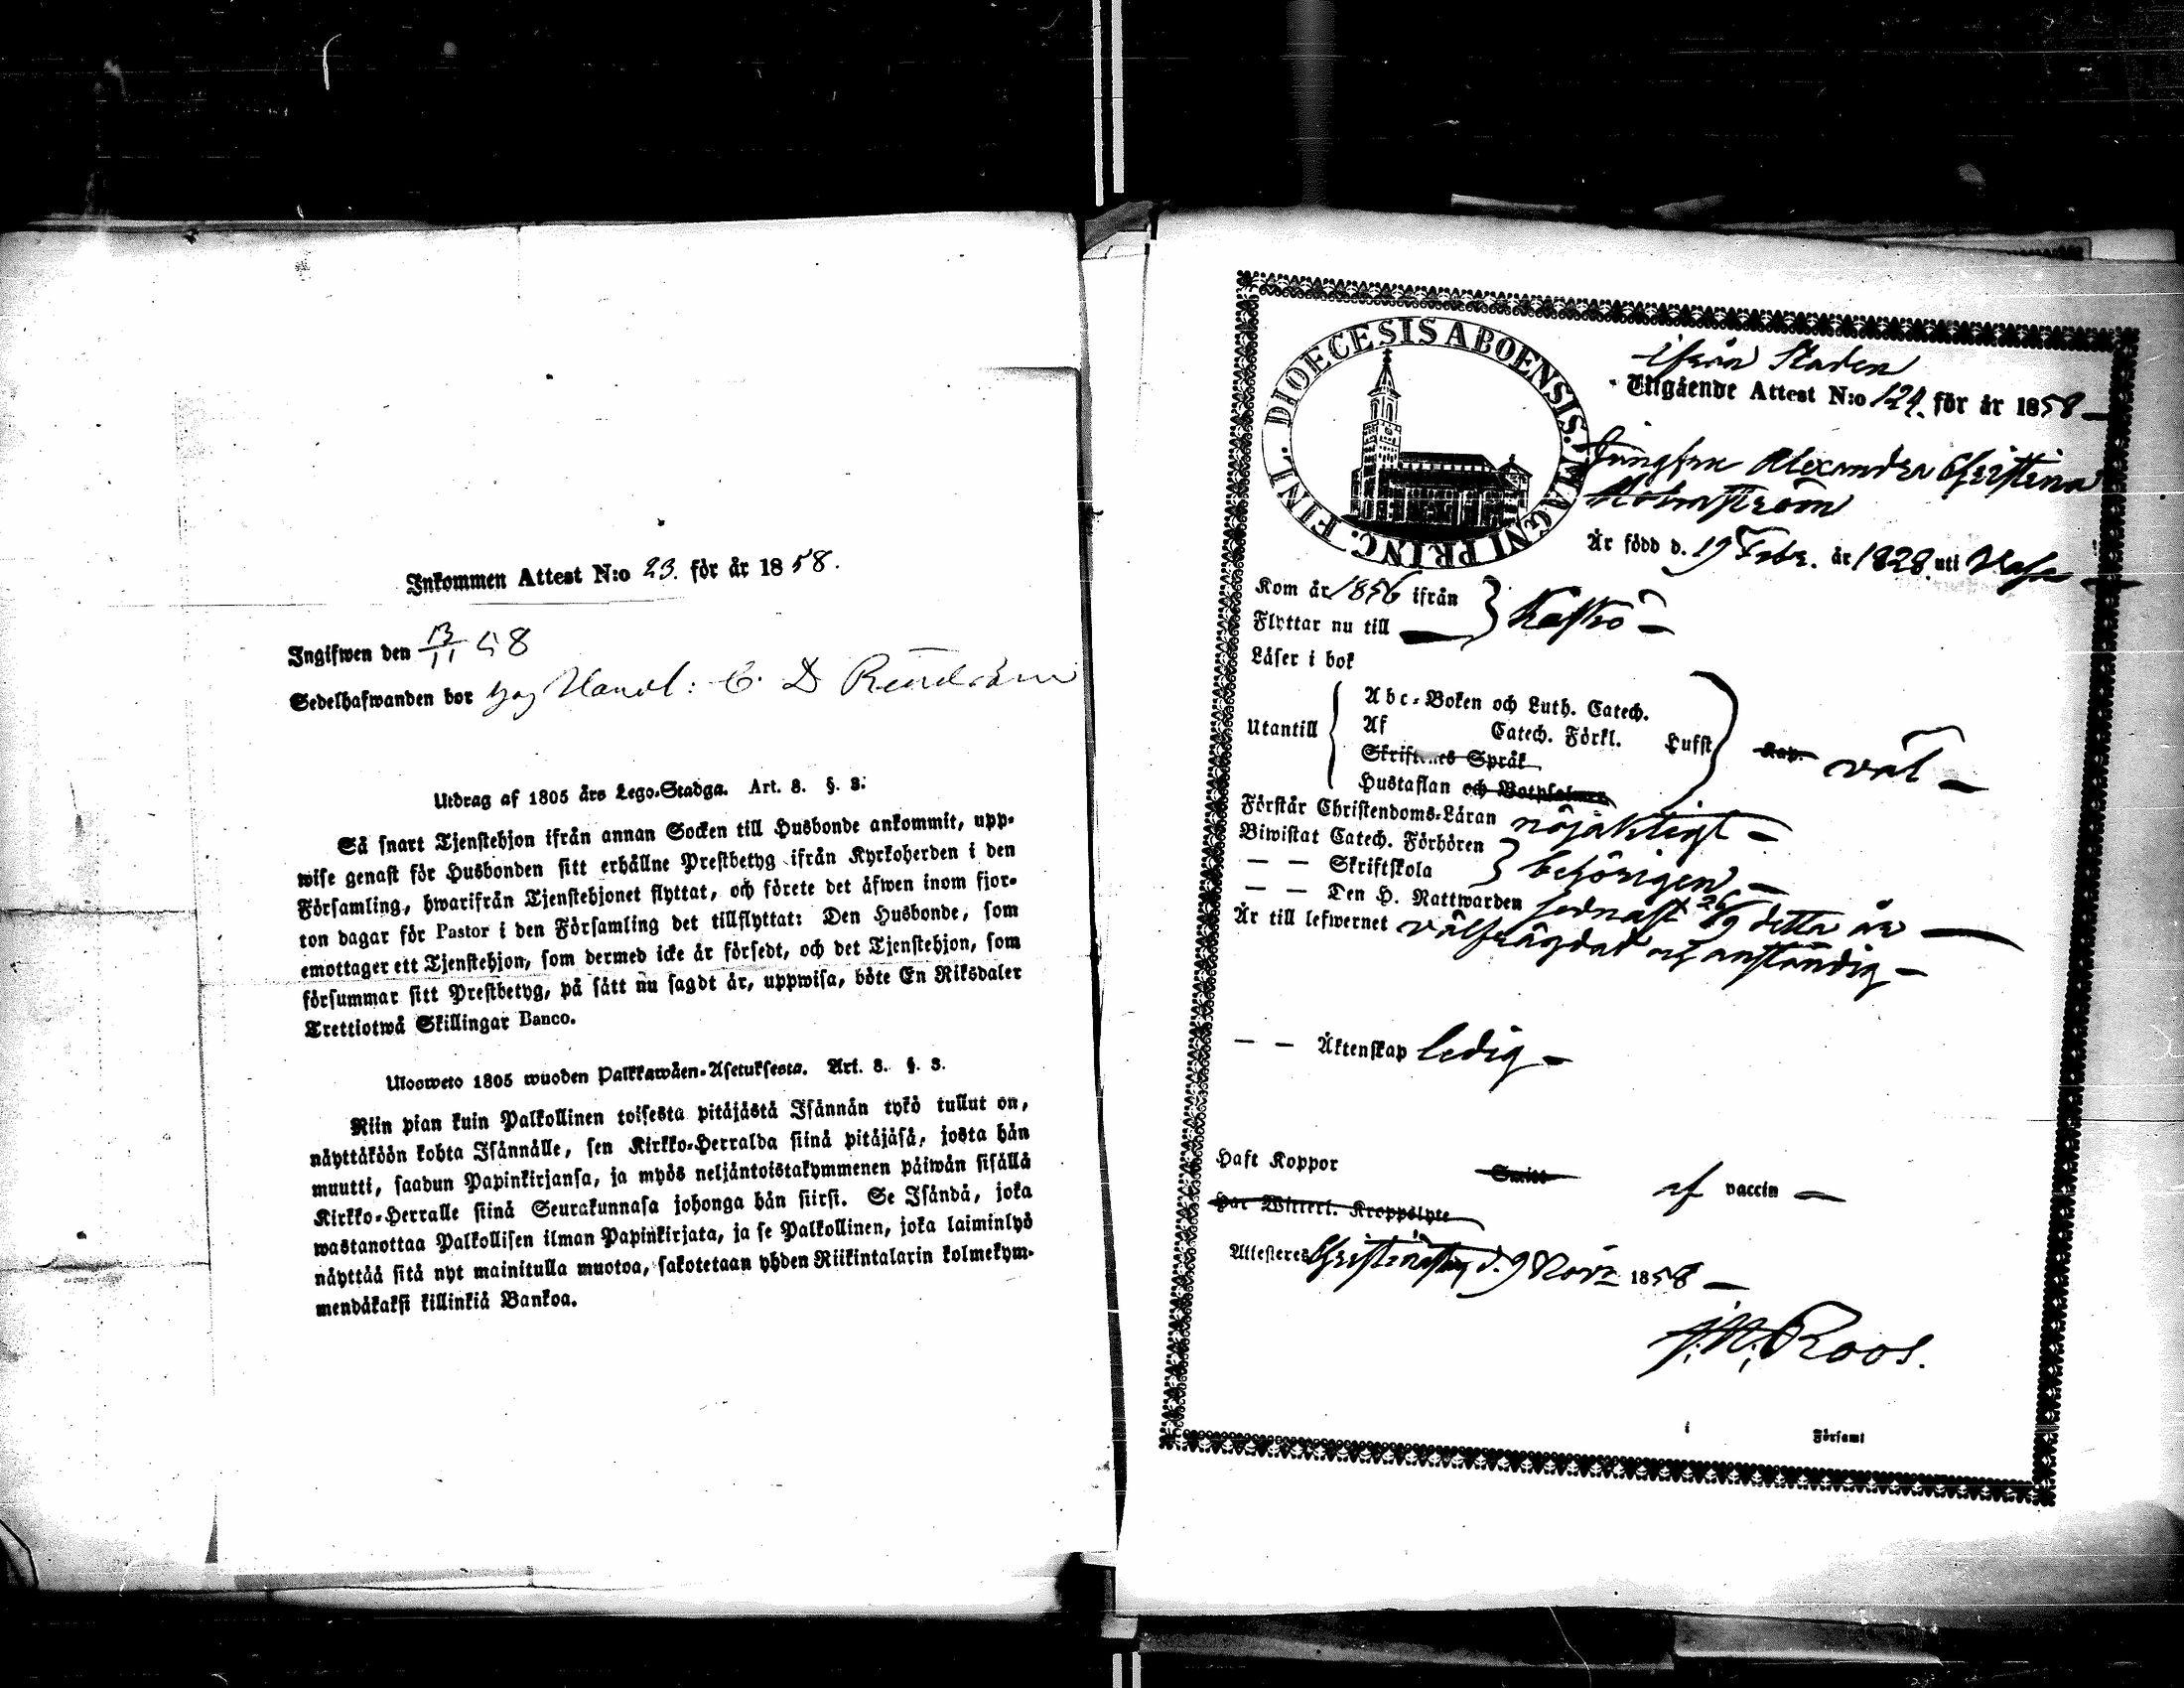 Inkommen Attest N:o 23. för år 1858.
Ingifwen den 13/11 58
Sedelhafwanden bor hos Handl: C. D
Utdrag af 1805 års Lego-Stadga. Art. 8. §. 3.
Så snart Tjenstehjon ifrån annan Socken till Husbonde ankommit, upp-
wise genast för Husbonden sitt erhållne Prestbetyg ifrån Kyrkoherden i den
Församling, hwarifrån Tjenstehjonet flyttat, och förete det äfwen inom fjor-
ton dagar för Pastor i den Församling det tillflyttat: Den Husbonde, som
emottager ett Tjenstehjon, som dermed icke är försedt, och det Tjenstehjon, som
försummar sitt Prestbetyg, på sätt nu sagdt är, uppwisa, böte En Riksdaler
Trettiotwå Skillingar Banco.
Ulosweto 1805 wuoden Palkkawäen-Asetuksesta. Art. 8. §. 3.
Niin pian kuin Palkollinen toisesta pitäjästä Isännän tykö tullut on,
näyttäköön kohta Isännälle, sen Kirkko-Herralda siinä pitäjäsä, josta hän
muutti, saadun Papinkirjansa, ja myös neljäntoistakymmenen päiwän sisällä
Kirkko-Herralle siinä Seurakunnasa johonga hän siirsi. Se Isändä, joka
wastanottaa Palkollisen ilman Papinkirjata, ja se Palkollinen, joka laiminlyö
näyttää sitä nyt mainitulla muotoa, sakotetaan yhden Riikintalarin kolmekym-
mendäkaksi killinkiä Bankoa.
DIOECESIS ABOENSIS. MAGNI PRINC. FINL.
ifrån Staden
Utgående Attest N:o 124. för år 1858
Jungfru Alexandra Christina
Holmström
Är född d. 19 Febr. år 1828 uti Wasa
Kom år 1856 ifrån
Flyttar nu till } Kaskö
Läser i bok
Utantill
Abc-Boken och Luth. Catech.
Af Catech. Förkl. Lufft Kap. väl
Skriftenes Språk
Hustaflan och Botpsalmen
Förstår Christendoms-Läran nöjaktigt
Biwistat Catech. Förhören
— — Skriftskola } behörigen
— — Den H. Nattwarden sednast 26/9 detta år
Är till lefwernet välfrägdad och anständig
— — Äktenskap ledig
Haft Koppor Smitt af vaccin
Har Witterl. Kroppslyte
Attesteres Christinestad d. 9 Nov. 1858
J. N. Roos.
i Församl